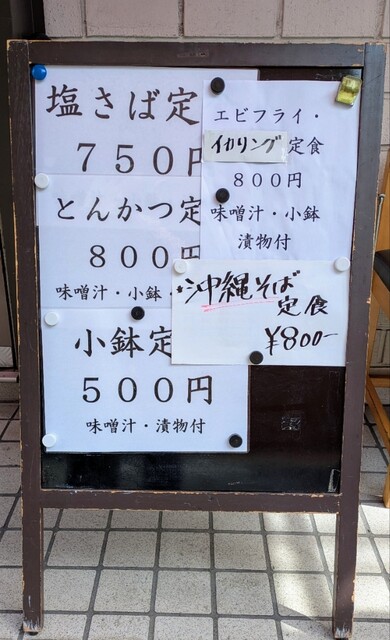 塩さば定
750円
とんかつ定
800円
味噌汁・小鉢・
小鉢定
500円
味噌汁・漬物付
エビフライ・
イカリング定食
800円
味噌汁・小鉢
漬物付
沖縄そば
定食
¥800-